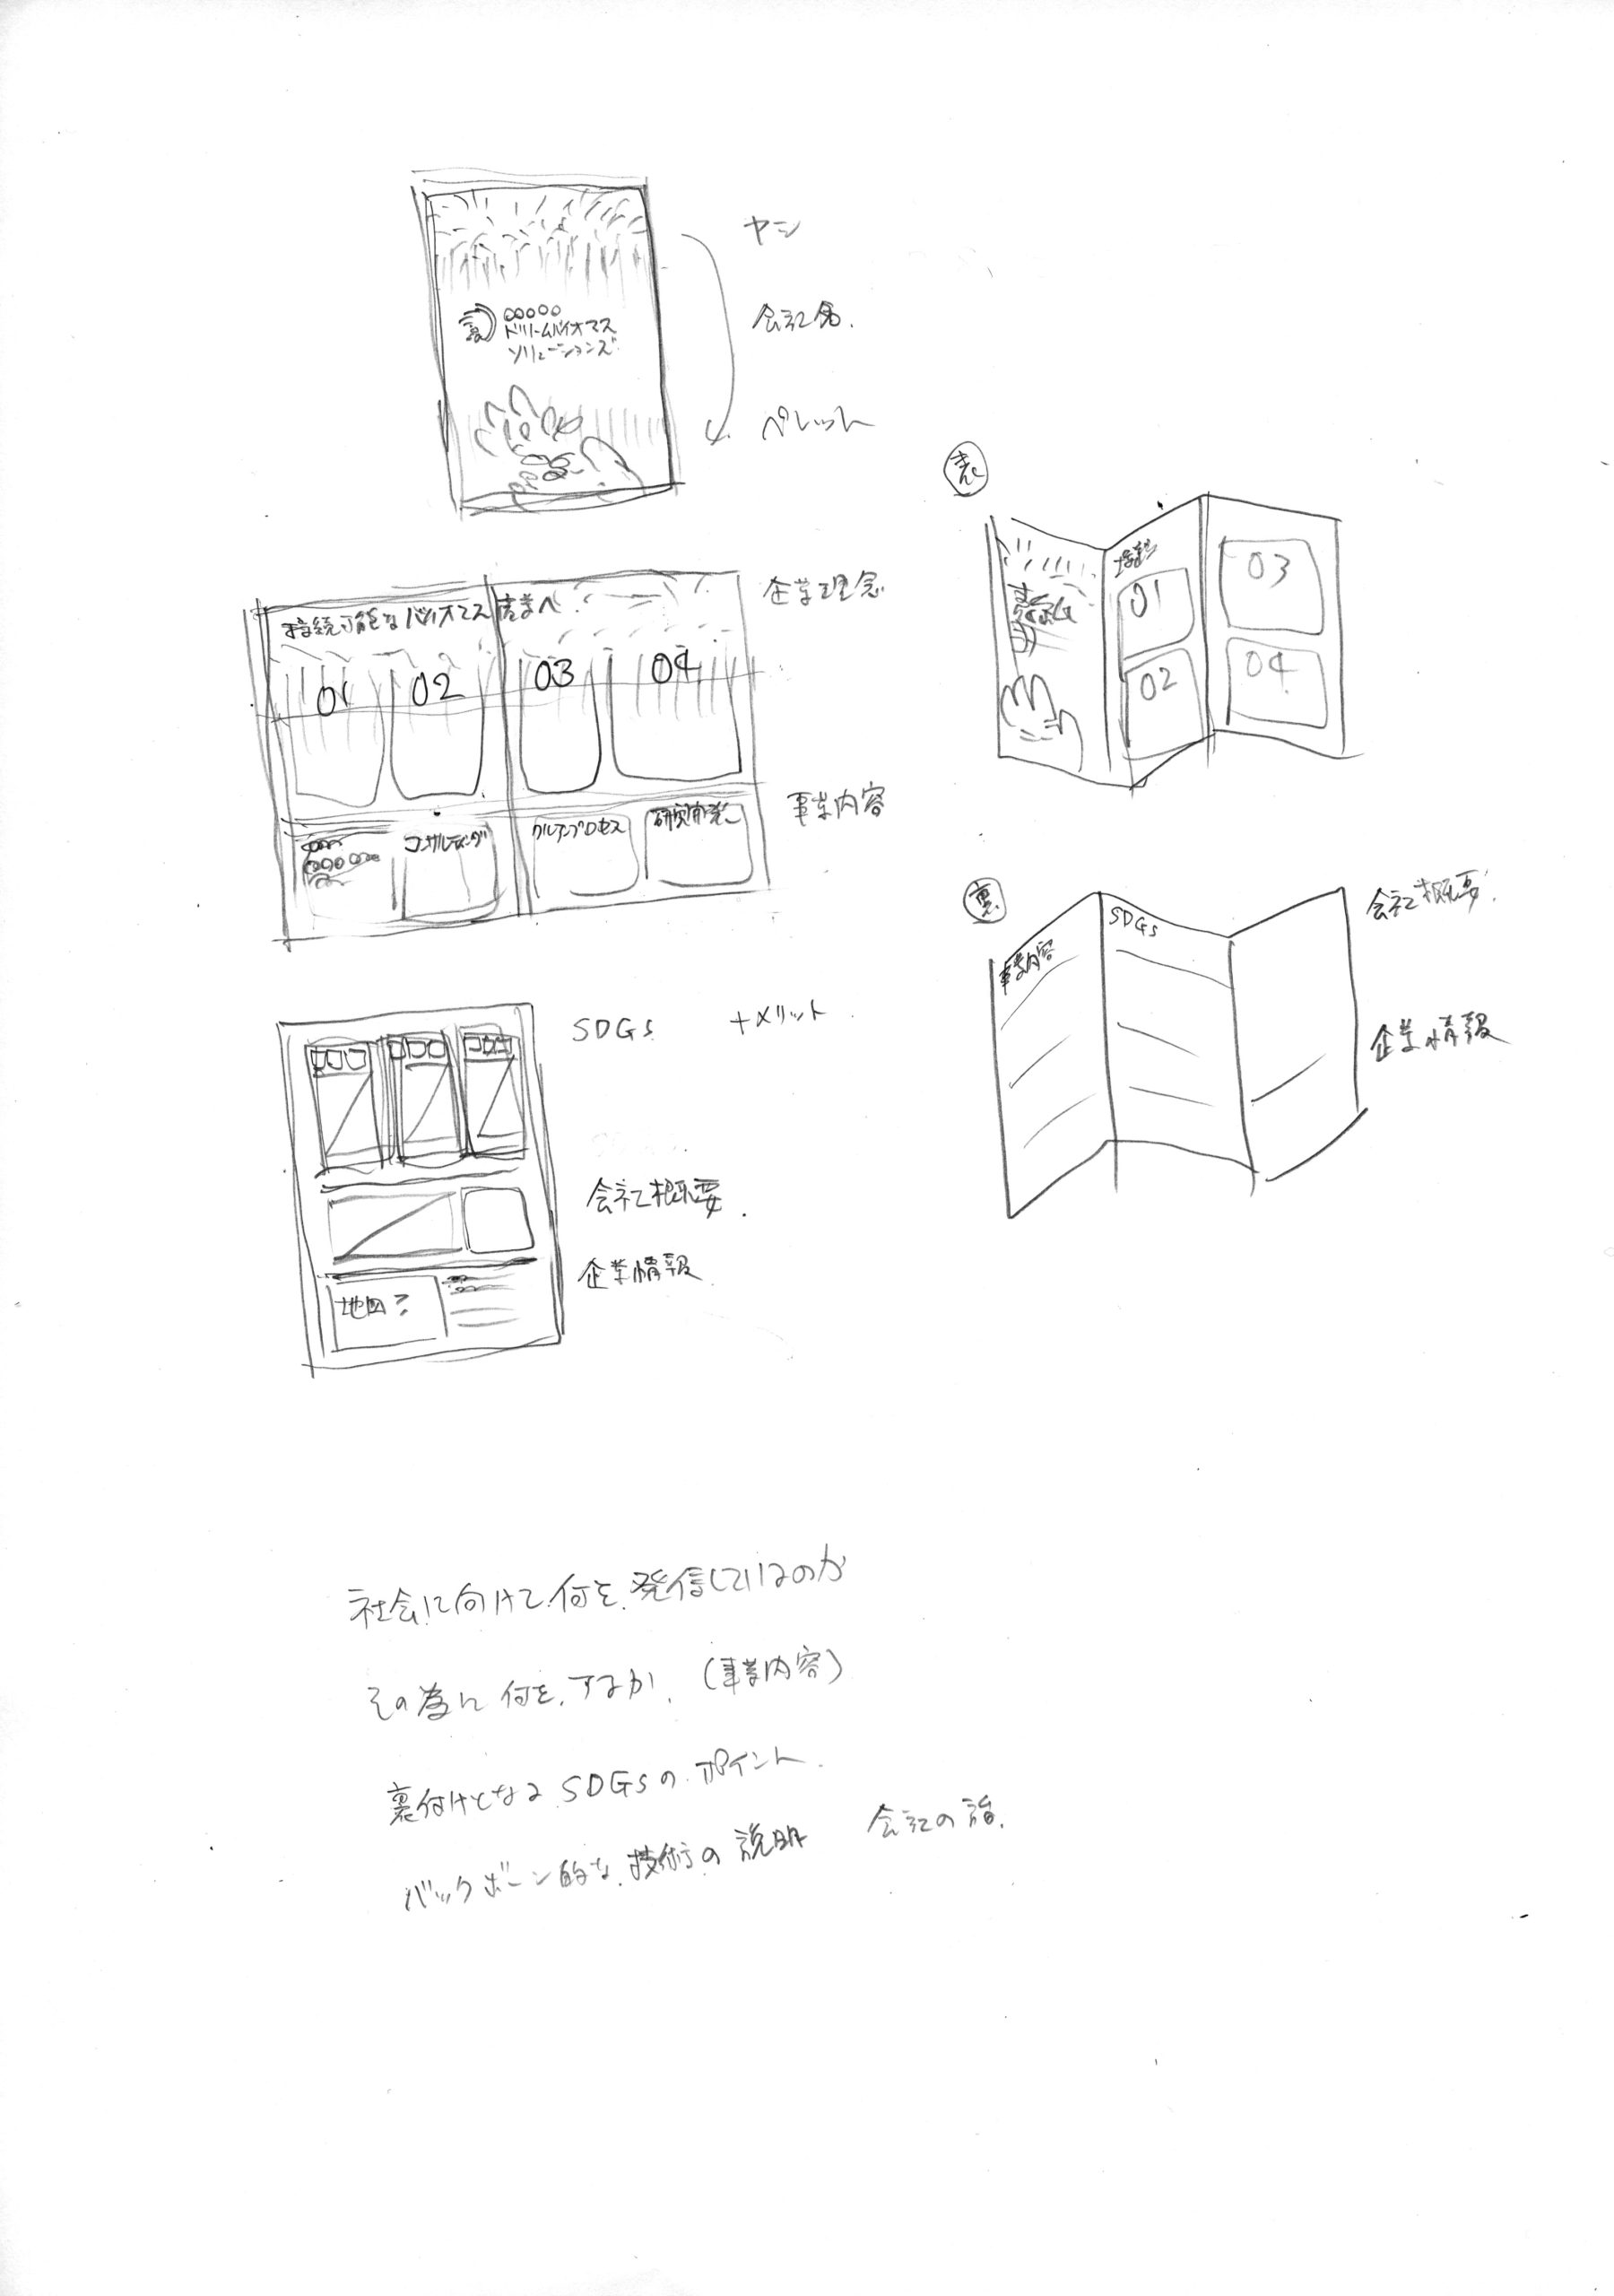 ヤシ
会社名
ドリームバイオマス
ソリューションズ
ペレット
持続可能なバイオマス産業へ
企業理念
01
02
03
04
事業内容
コンサルティング
クルアンプロセス
研究開発
SDGs
+メリット
会社概要
企業情報
地図?
表
01
02
03
04
裏
事業内容
SDGs
会社概要
企業情報
社会に向けて何を発信しているのか
その為に何をするか (事業内容)
裏付けとなるSDGsのポイント
バックボーン的な技術の説明 会社の話